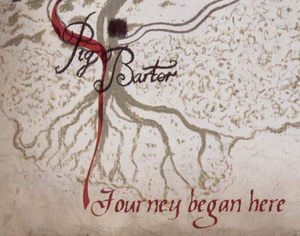 Pig
Barter
Journey began here